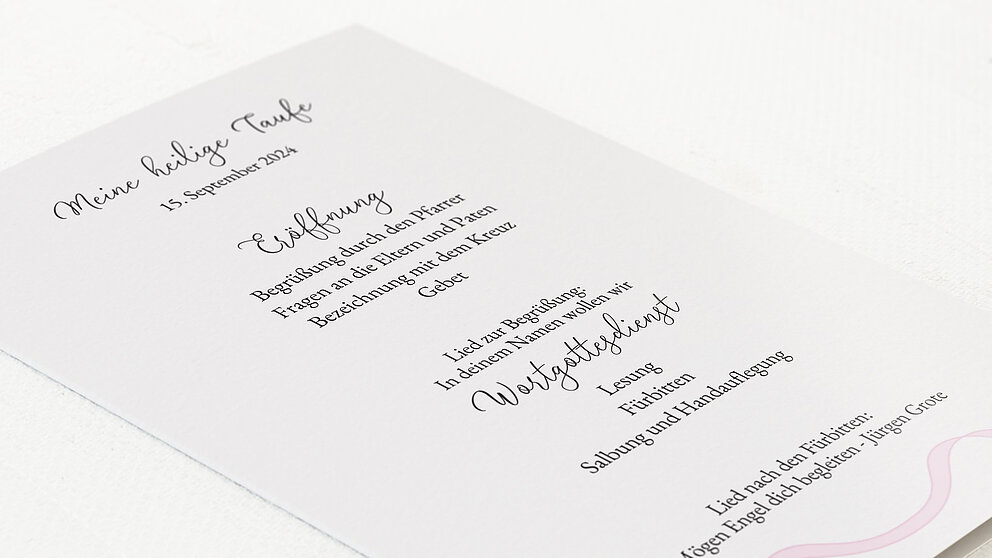 Meine heilige Taufe
15. September 2024
Eröffnung
Begrüßung durch den Pfarrer
Fragen an die Eltern und Paten
Bezeichnung mit dem Kreuz
Gebet
Lied zur Begrüßung:
In deinem Namen wollen wir
Wortgottesdienst
Lesung
Fürbitten
Salbung und Handauflegung
Lied nach den Fürbitten:
Mögen Engel dich begleiten - Jürgen Grote